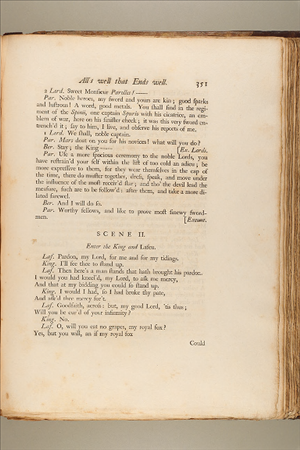 All's well that Ends well. 351
2 Lord. Sweet Monsieur Parolles! —
Par. Noble heroes, my sword and yours are kin; good sparks
and lustrous! A word, good metals. You shall find in the regi-
ment of the Spinij, one captain Spurio with his cicatrice, an em-
blem of war, here on his sinister cheek; it was this very sword en-
trench'd it; say to him, I live, and observe his reports of me.
1 Lord. We shall, noble captain.
Par. Mars doat on you for his novices! what will you do?
Ber. Stay; the King—— [Ex. Lords.
Par. Use a more spacious ceremony to the noble Lords, you
have restrain'd your self within the list of too cold an adieu; be
more expressive to them, for they wear themselves in the cap of
the time, there do muster together, speak, and move under
the influence of the most receiv'd star; and tho' the devil lead the
measure, such are to be follow'd: after them, and take a more di-
lated farewel.
Ber. And I will do so.
Par. Worthy fellows, and like to prove most sinewy sword-
men. [Exeunt.
SCENE II.
Enter the King and Lafeu.
Laf. Pardon, my Lord, for me and for my tidings.
King. I'll fee thee to stand up.
Laf. Then here's a man stands that hath brought his pardon.
I would you had kneel'd, my Lord, to ask me mercy,
And that at my bidding you could so stand up.
King. I would I had, so I had broke thy pate,
And ask'd thee mercy for't.
Laf. Goodfaith, across: but, my good Lord, 'tis thus;
Will you be cur'd of your infirmity?
King. No.
Laf. O, will you eat no grapes, my royal fox?
Yes, but you will, an if my royal fox
Could